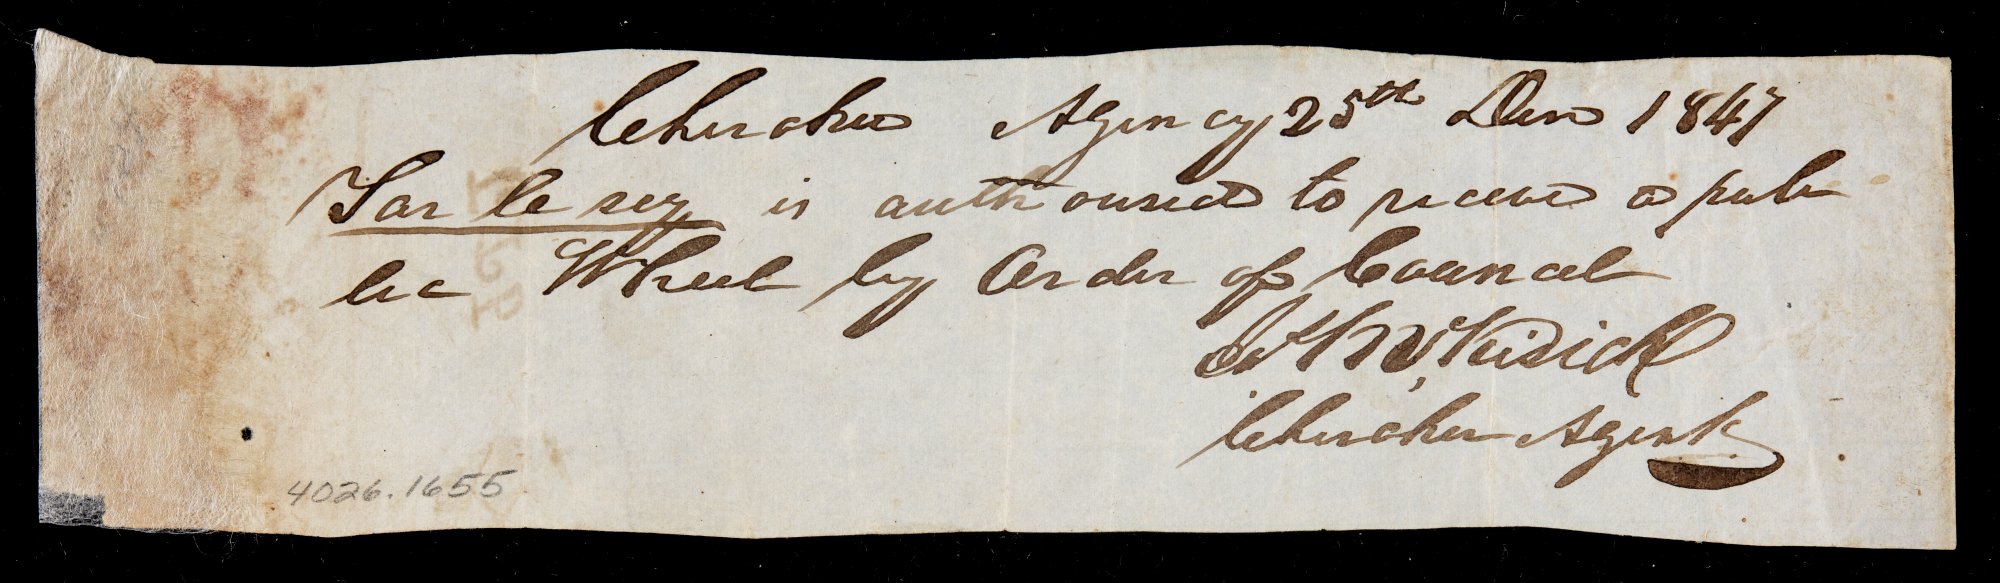 Cherokee Agency 25th Decr 1847
Tar le sey is authorised to receive a pub
lic Wheel by Order of Council
McKisick
Cherokee Agent
4026.1655